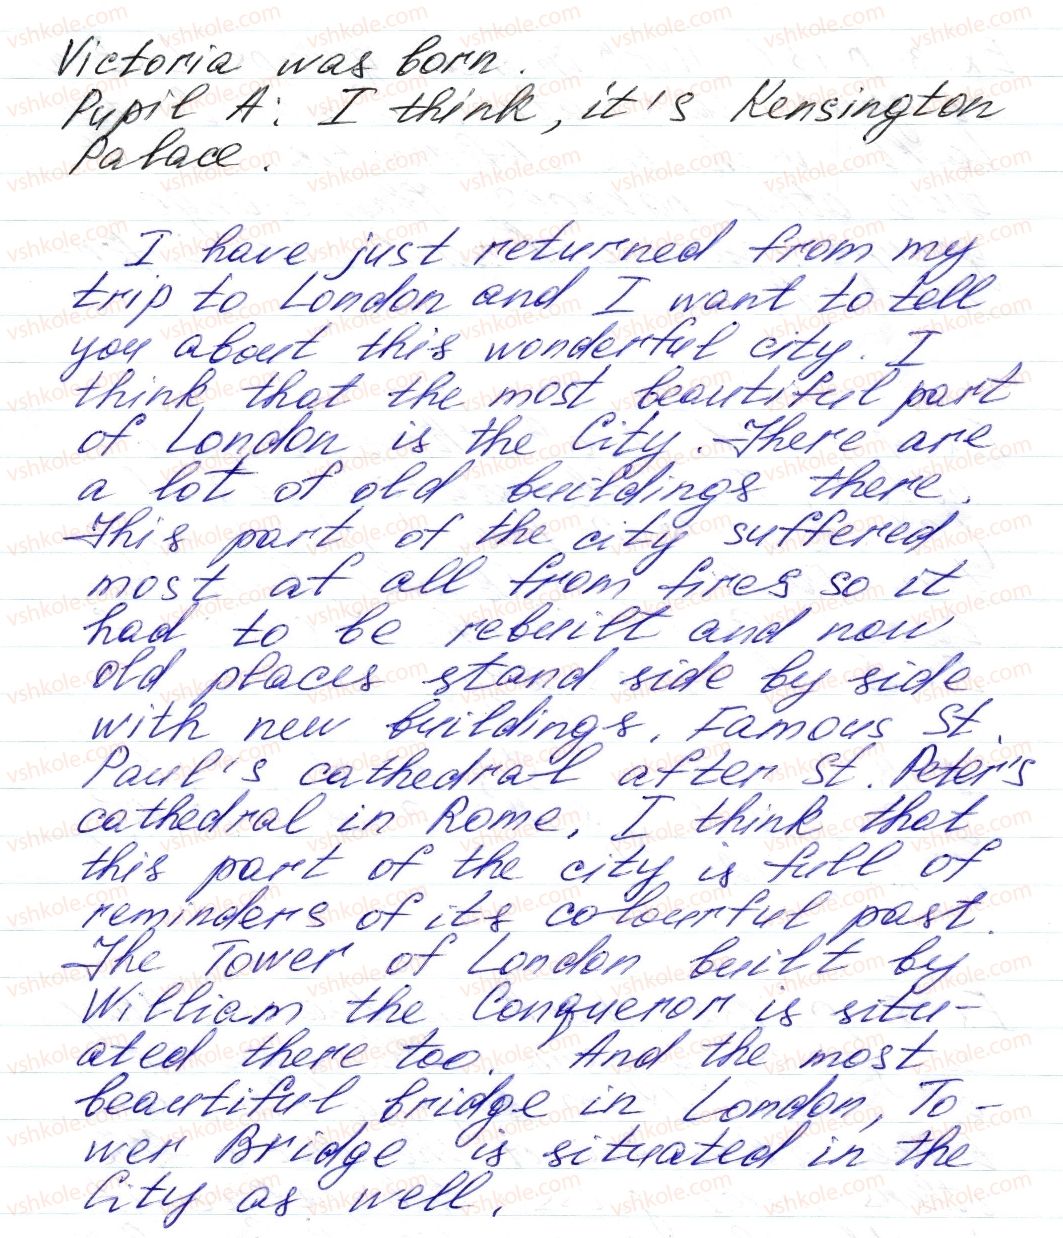 Victoria was born.
Pupil A: I think, it's Kensington
Palace.
I have just returned from my
trip to London and I want to tell
you about this wonderful city. I
think that the most beautiful part
of London is the City. There are
a lot of old buildings there.
This part of the city suffered
most of all from fires so it
had to be rebuilt and now
old places stand side by side
with new buildings. Famous St.
Paul's cathedral after St. Peter's
cathedral in Rome. I think that
this part of the city is full of
reminders of its colourful past.
The Tower of London built by
William the Conqueror is situ-
ated there too. And the most
beautiful bridge in London, To-
wer Bridge is situated in the
City as well.